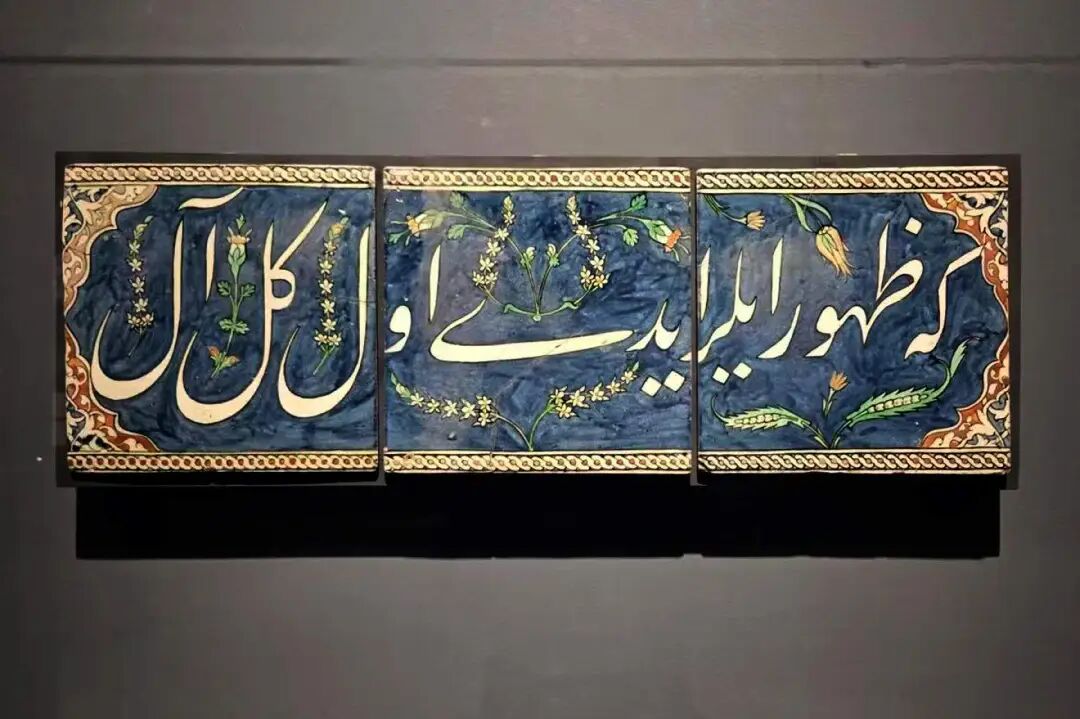 که ظهور ایلر ایدی اول کل آل